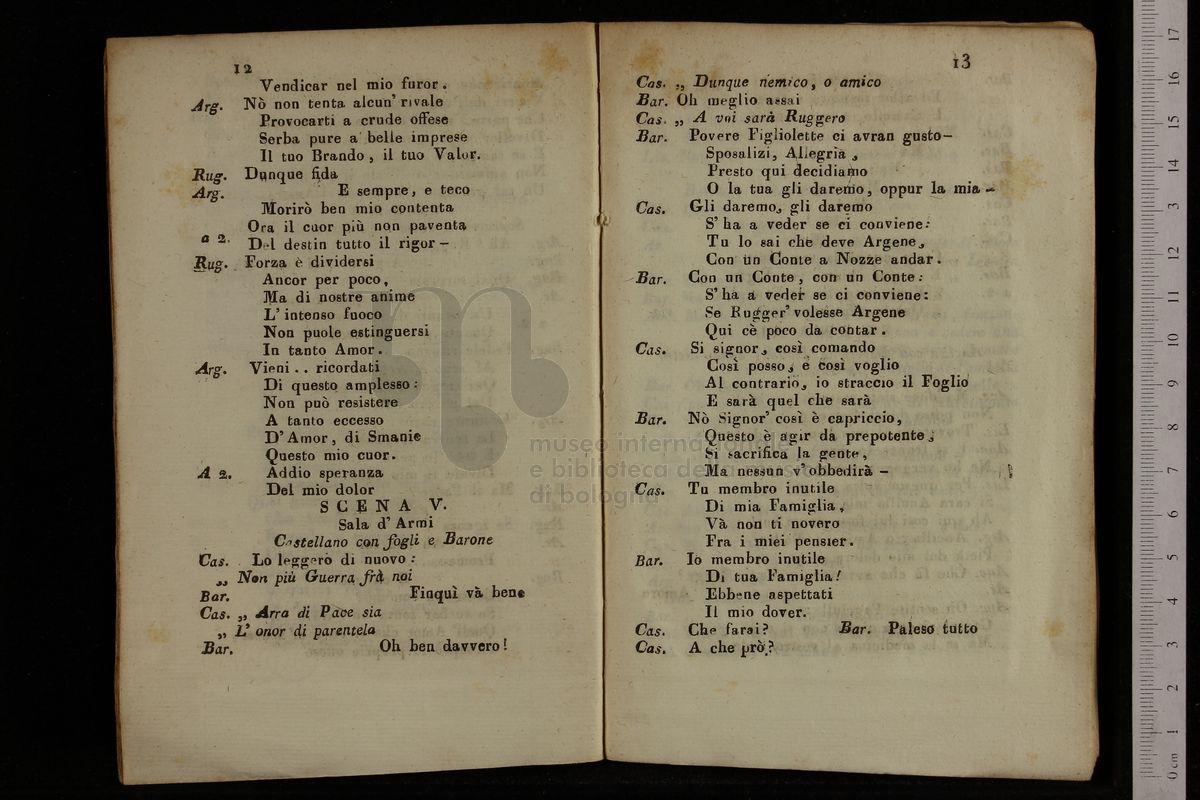 12
Vendicar nel mio furor.
Arg. Nò non tenta alcun' rivale
Provocarti a crude offese
Serba pure a belle imprese
Il tuo Brando, il tuo Valor.
Rug. Dunque fida
Arg. E sempre, e teco
Morirò ben mio contenta
Ora il cuor più non paventa
a 2. Del destin tutto il rigor —
Rug. Forza è dividersi
Ancor per poco,
Ma di nostre anime
L' intenso fuoco
Non puole estinguersi
In tanto Amor.
Arg. Vieni . . ricordati
Di questo amplesso:
Non può resistere
A tanto eccesso
D' Amor, di Smanie
Questo mio cuor.
A 2. Addio speranza
Del mio dolor
SCENA V.
Sala d' Armi
Castellano con fogli e Barone
Cas. Lo leggerò di nuovo:
„ Non più Guerra frà noi
Bar. Finquì và bene
Cas. „ Arra di Pace sia
„ L' onor di parentela
Bar. Oh ben davvero!
13
Cas. „ Dunque nemico, o amico
Bar. Oh meglio assai
Cas. „ A voi sarà Ruggero
Bar. Povere Figliolette ci avran gusto—
Sposalizi, Allegria,
Presto qui decidiamo
O la tua gli daremo, oppur la mia —
Cas. Gli daremo, gli daremo
S' ha a veder se ci conviene:
Tu lo sai che deve Argene,
Con un Conte a Nozze andar.
Bar. Con un Conte, con un Conte:
S' ha a veder se ci conviene:
Se Rugger' volesse Argene
Qui cè poco da contar.
Cas. Si signor, così comando
Così posso, e così voglio
Al contrario, io straccio il Foglio
E sarà quel che sarà
Bar. Nò Signor' così è capriccio,
Questo è agir da prepotente,
Si sacrifica la gente,
Ma nessun v' obbedirà —
Cas. Tu membro inutile
Di mia Famiglia,
Và non ti novero
Fra i miei pensier.
Bar. Io membro inutile
Di tua Famiglia!
Ebbene aspettati
Il mio dover.
Cas. Che farai? Bar. Paleso tutto
Cas. A che prò?
museo internazionale
e biblioteca della musica
di bologna
0 cm 1 2 3 4 5 6 7 8 9 10 11 12 13 14 15 16 17